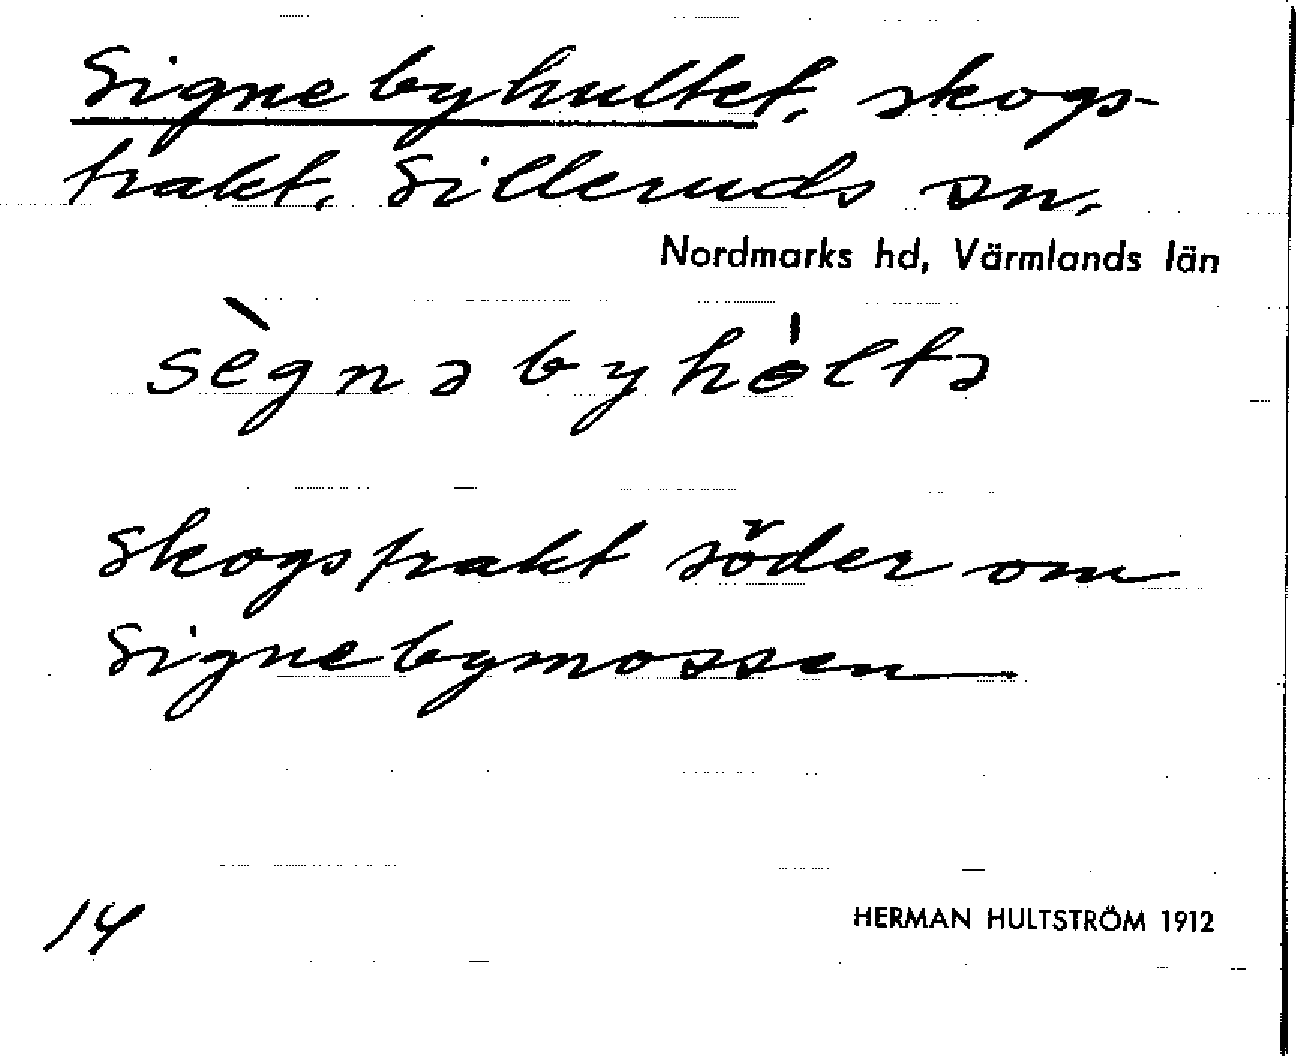 Signebyhultet, skogs-
trakt. Silleruds sn.
Nordmarks hd, Värmlands län
sègnəbyhɵ́ltə
Skogstrakt söder om
Signebymossen
14
HERMAN HULTSTRÖM 1912